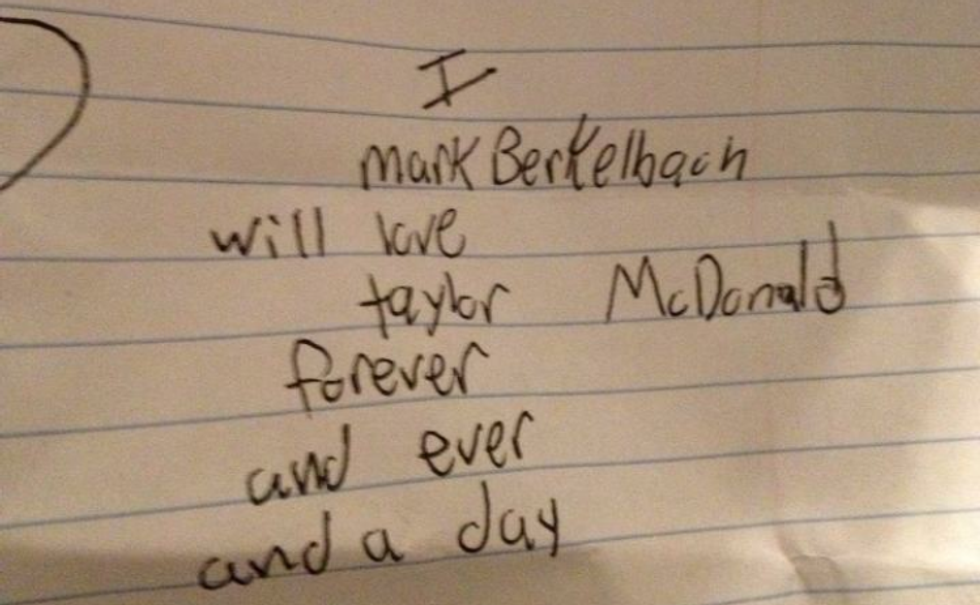 I
mark Berkelbach
will love
taylor McDonald
forever
and ever
and a day